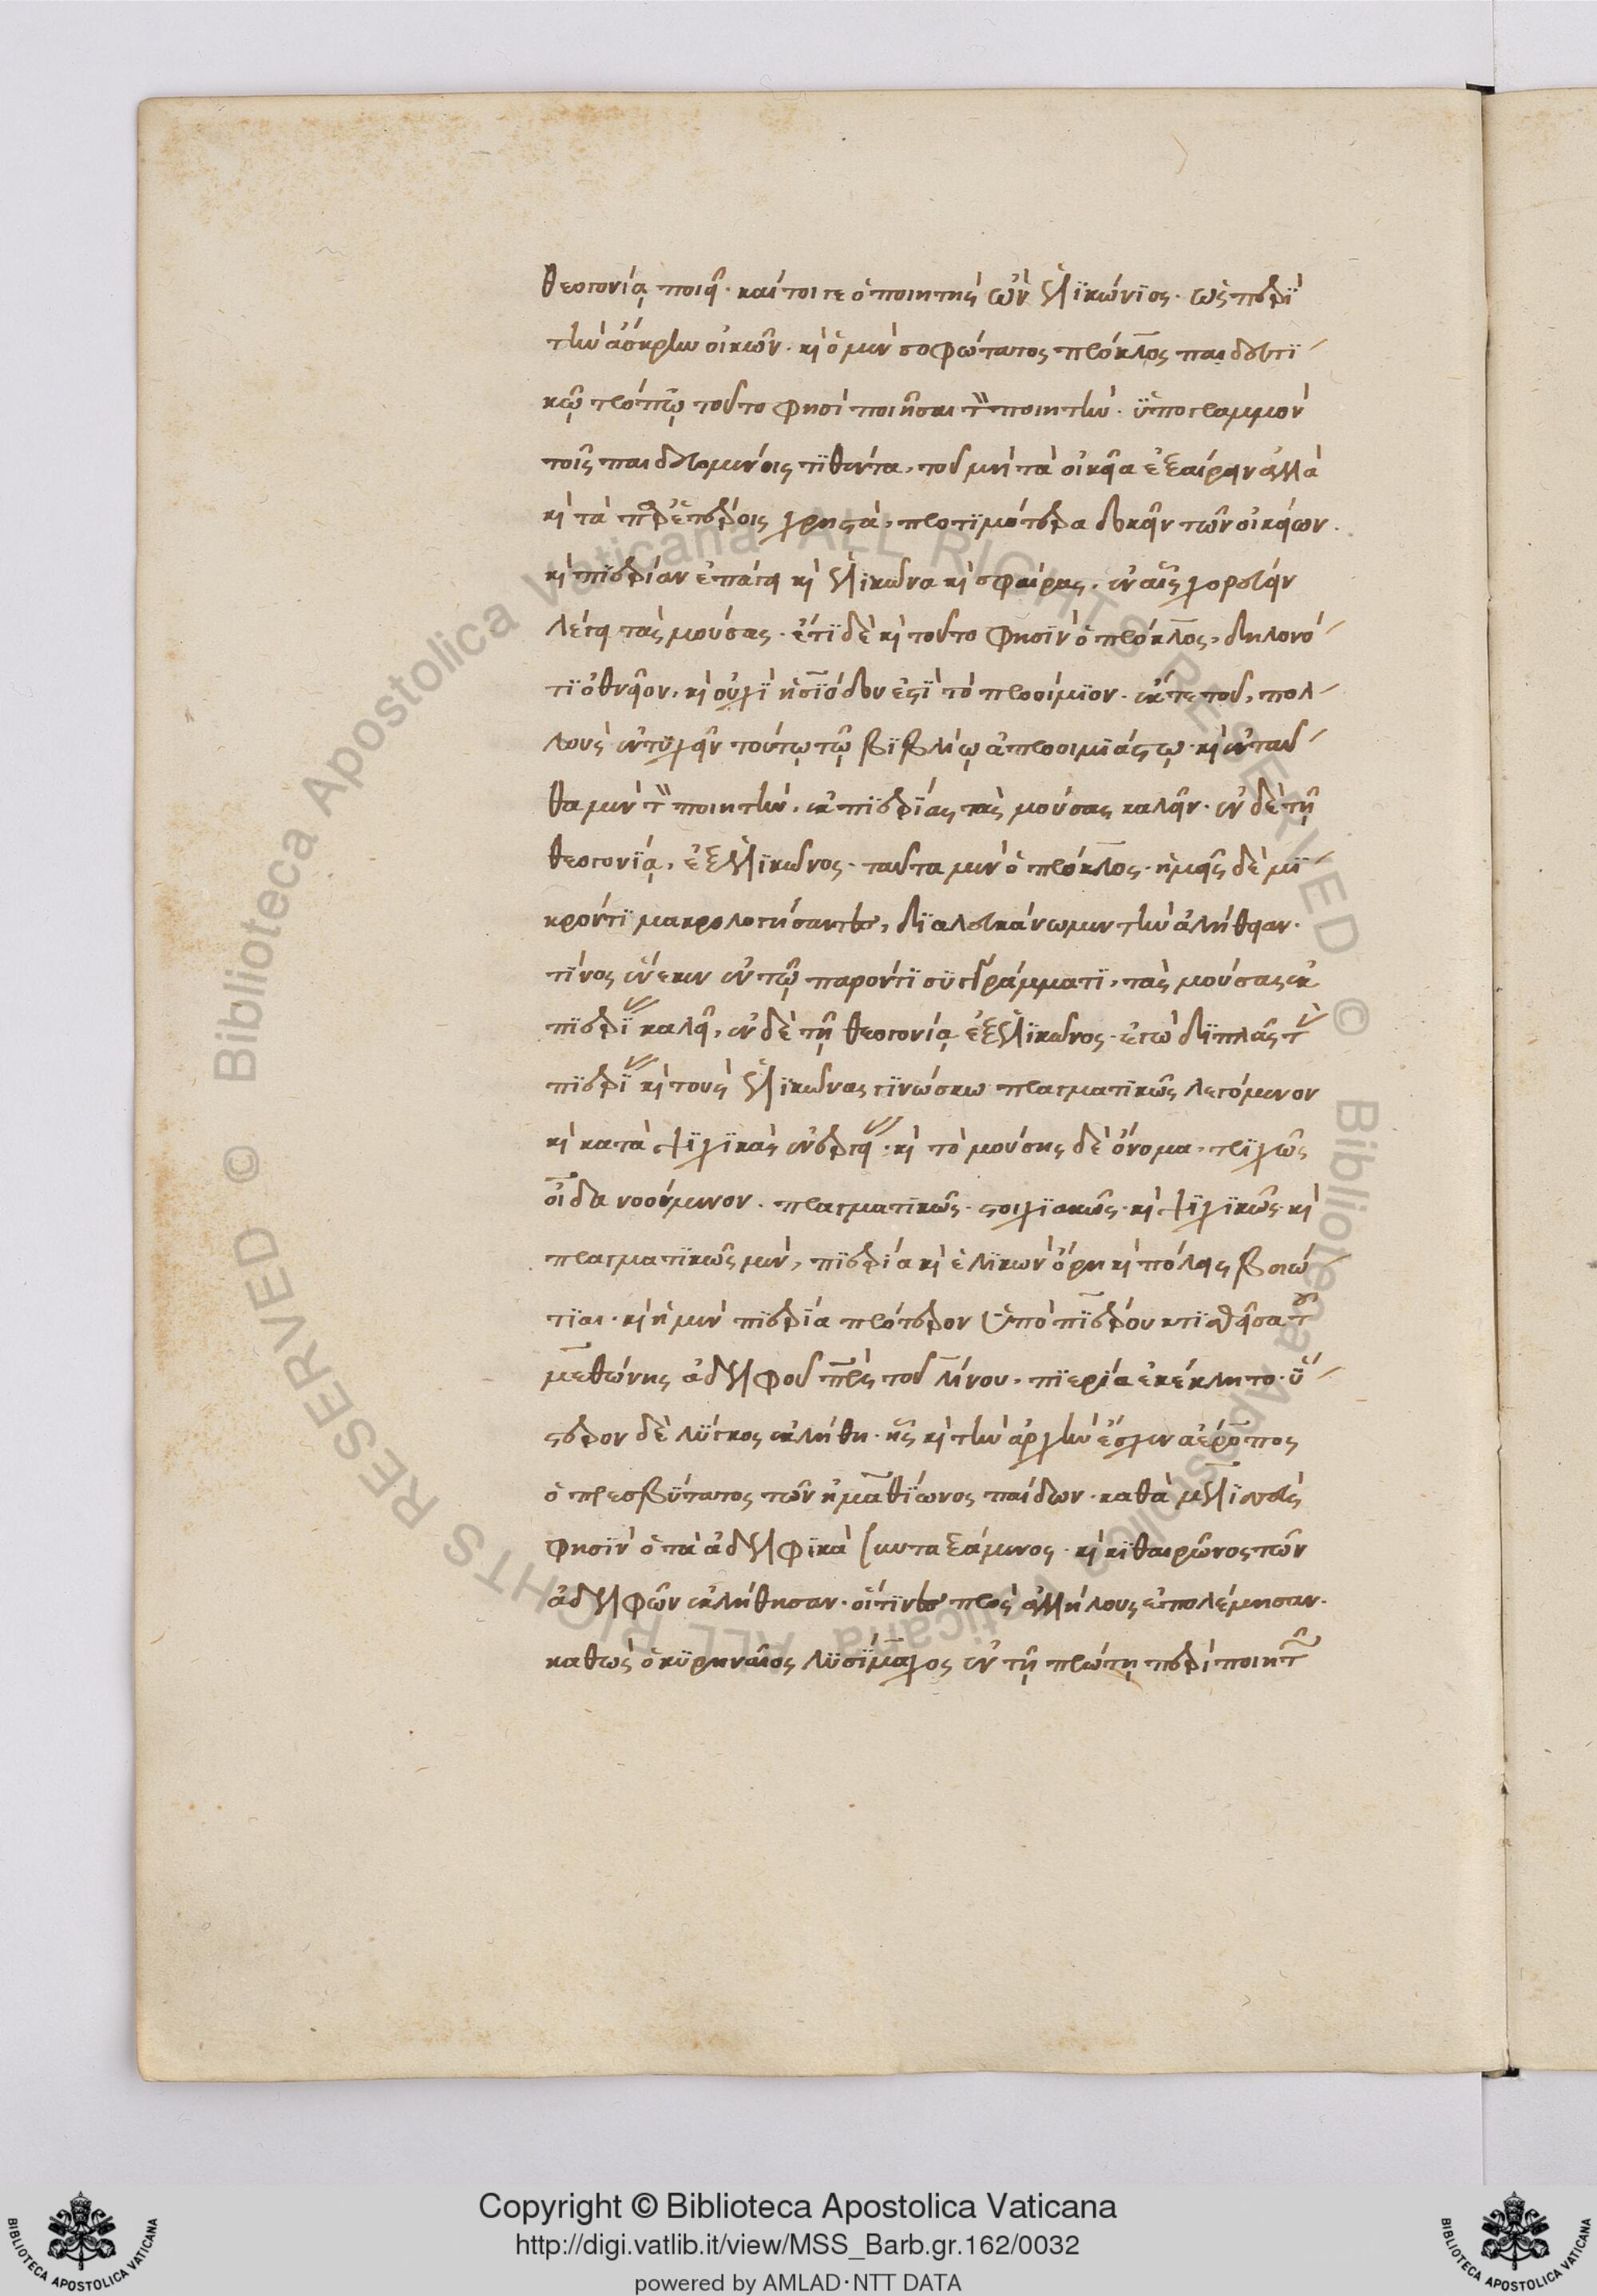 θεογονίᾳ ποιεῖ· καίτοιγε ὁ ποιητὴς ὢν ἑλϊκώνϊος· ὡς περὶ
τὴν ἄσκρην οἰκῶν· κὶ ὁ μὲν σοφώτατος πρόκλος παιδευτϊ
κῷ τρόπῳ τοῦτο φησὶ ποιῆσαι τὸν ποιητήν· ϋπογραμμὸν
τοῖς παιδευομένοις τϊθέντα, τοῦ μὴ τὰ οἰκεῖα ἐξαίρειν ἀλλὰ
κὶ τὰ παρ' ἑτέροις χρηστὰ, προτϊμότερα δοκεῖν τῶν οἰκείων.
κὶ πϊερίαν ἐπάγει κὶ ἑλϊκῶνα κὶ σφαίρας, ἐν αἷς χορεύειν
λέγει τὰς μούσας· ἔτϊ δὲ κὶ τοῦτο φησῒν ὁ πρόκλος, δηλονό
τϊ ὀθνεῖον, κὶ οὐχῒ ἡσϊόδου ἐστῒ τὸ προοίμϊον· ἔκ τε τοῦ, πολ
λοὺς ἐντϋχεῖν τούτῳ τῷ βϊβλίῳ ἀπροοιμϊάστῳ· κὶ ἐνταῦ
θα μὲν τὸν ποιητὴν, ἐκ πϊερΐας τὰς μούσας καλεῖν· ἐν δὲ τῇ
θεογονΐᾳ, ἐξ ἑλϊκῶνος· ταῦτα μὲν ὁ πρόκλος· ἡμεῖς δὲ μϊ
κρόν τϊ μακρολογήσαντες, δϊαλευκάνωμεν τὴν ἀλήθειαν·
τΐνος ἕνεκεν ἐν τῷ παρόντϊ σϋγγράμματϊ, τὰς μούσας ἐκ
πϊερΐας καλεῖ, ἐν δὲ τῇ θεογονίᾳ ἐξ ἑλϊκῶνος· ἐγὼ δϊπλᾶς τὰς
πϊερΐας κὶ τοὺς ἑλϊκῶνας γϊνώσκω πραγματϊκῶς λεγόμενον
κὶ κατὰ ψϋχϊκὰς ἐνεργείας· κὶ τὸ μούσης δὲ ὄνομα, τρϊχῶς
οἶδα νοούμενον· πραγματϊκῶς· στοιχϊακῶς· κὶ ψϋχϊκῶς· κὶ
πραγματϊκῶς μὲν, πϊερΐα κὶ ἑλϊκὼν ὄρη κὶ πόλεις βοιώ
τϊαι· κὶ ἡ μὲν πϊερΐα πρότερον ὑπὸ πϊέρου κτϊσθεῖσα τοῦ
μεθώνης ἀδελφοῦ πατρὸς τοῦ λίνου, πϊερία ἐκέκλητο· ὕ
στερον δὲ λϋγκος ἐκλήθη· ἧς κὶ τὴν ἀρχὴν ἔσχεν ἀέροπος
ὁ πρεσβϋτατος τῶν ἠμαθΐωνος παίδων· καθὰ μελϊσεὺς
φησῒν ὁ τὰ ἀδελφϊκὰ συνταξάμενος· κὶ κϊθαιρῶνος τῶν
ἀδελφῶν ἐκλήθησαν· οἵτϊνες πρὸς ἀλλήλους ἐπολέμησαν·
καθὼς ὁ κϋρηναῖος λϋσΐμαχος ἐν τῇ πρώτῃ περὶ ποιητῶν
Copyright © Biblioteca Apostolica Vaticana
http://digi.vatlib.it/view/MSS_Barb.gr.162/0032
powered by AMLAD·NTT DATA